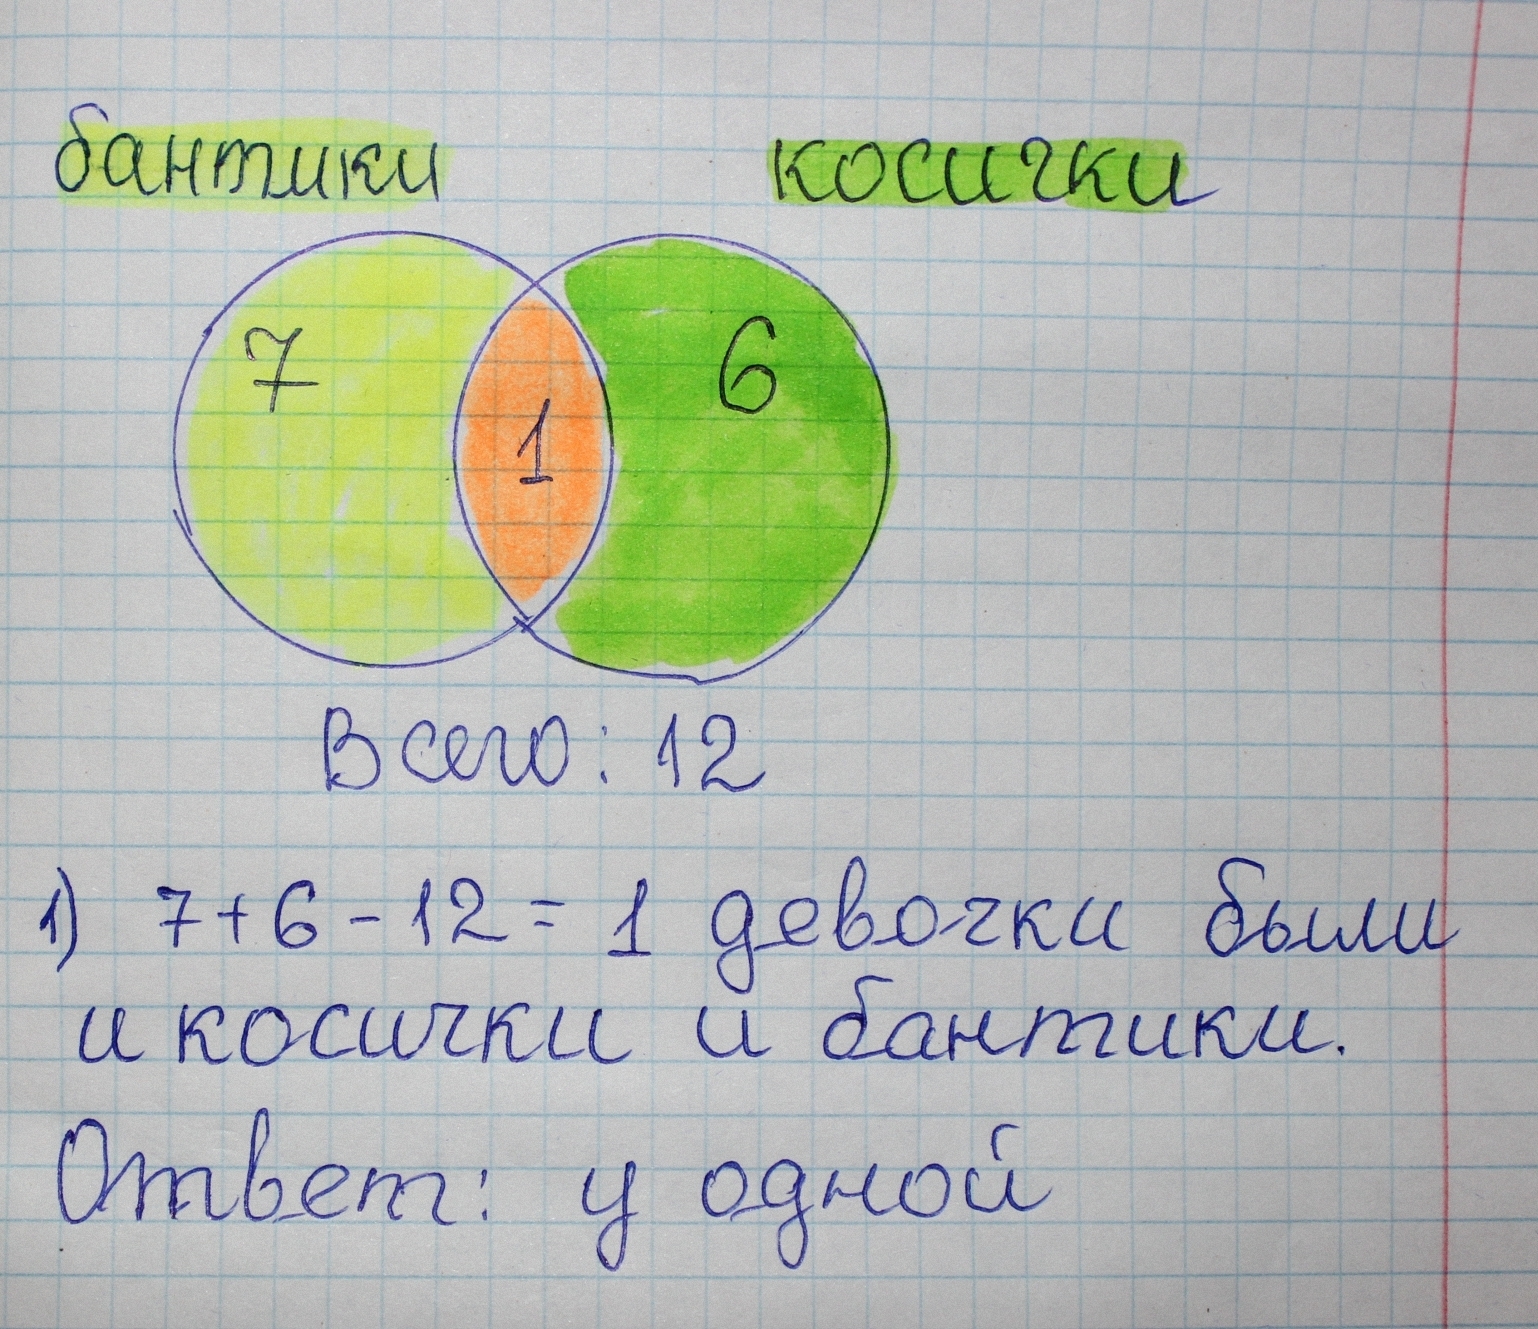 бантики косички
7 1 6
Всего: 12
1) 7+6-12=1 девочки были
и косички и бантики.
Ответ: у одной